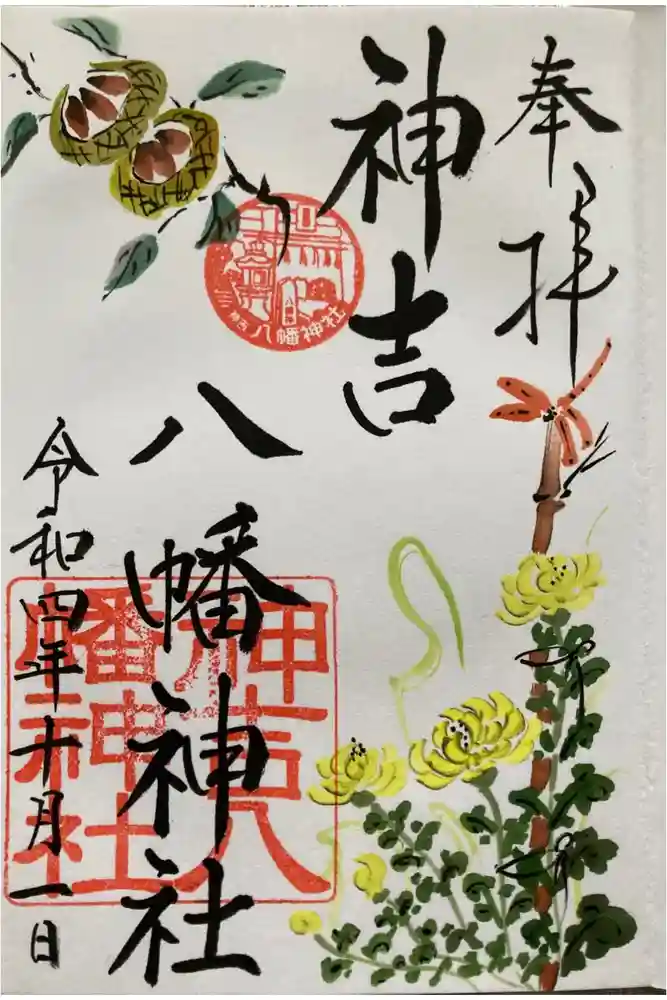 奉拝
神吉
八幡神社
令和四年十月一日
神吉八幡神社
神吉八
幡神社